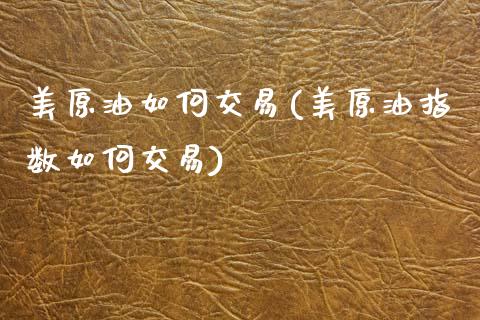 美原油如何交易(美原油指
数如何交易)